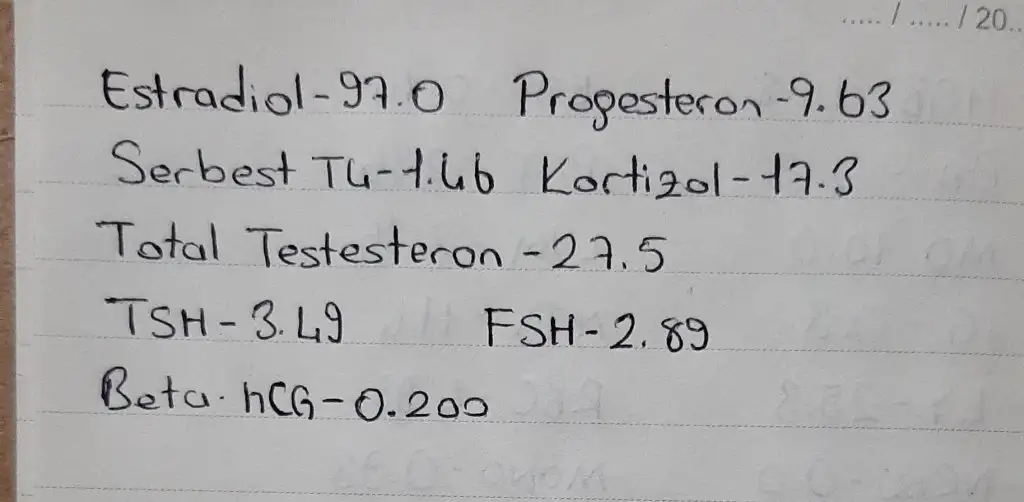 ..... / ..... / 20..
Estradiol - 97.0 Progesteron - 9.63
Serbest T4 - 1.46 Kortizol - 17.3
Total Testesteron - 27.5
TSH - 3.49 FSH - 2.89
Beta. hCG - 0.200